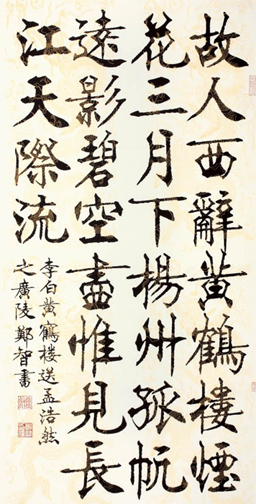 故人西辭黃鶴樓煙
花三月下楊州孤帆
遠影碧空盡惟見長
江天際流
李白黃鶴樓送孟浩然
之廣陵 鄭智書